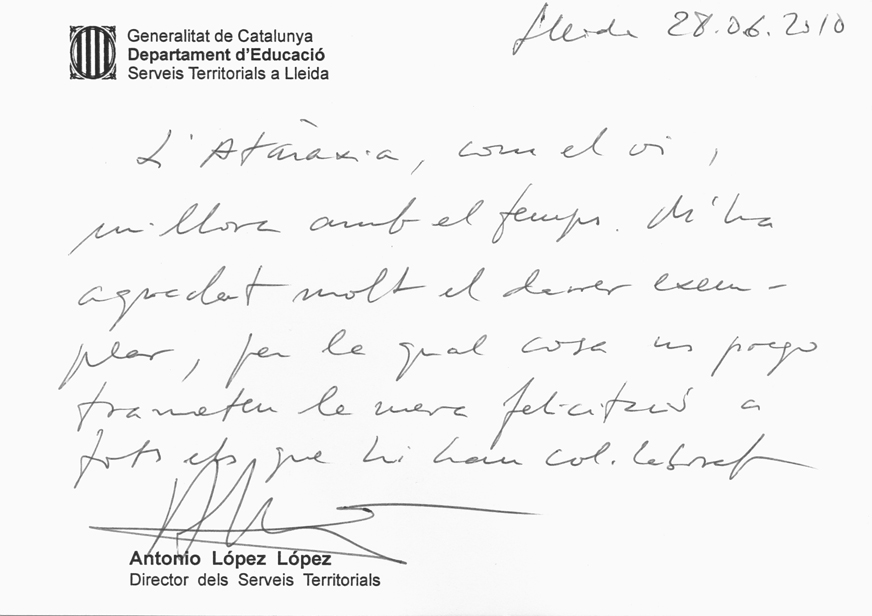 Generalitat de Catalunya
Departament d'Educació
Serveis Territorials a Lleida
Lleida 28.06.2010
L'Ataràxia, com el vi,
millora amb el temps. M'ha
agradat molt el darrer exem-
plar, per la qual cosa us prego
trameteu la meva felicitació a
tots els que hi han col.laborat
Antonio López López
Director dels Serveis Territorials